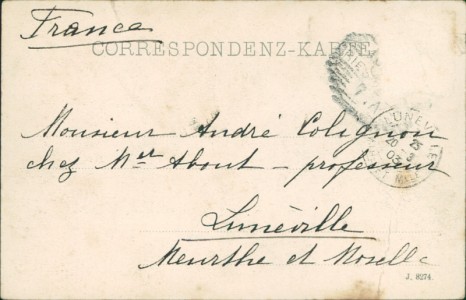 Franca
CORRESPONDENZ-KARTE
LUNEVILLE
Monsieur André Colignon
chez Mr About – professeur
Lunéville
Meurthe et Moselle
J. 8274.